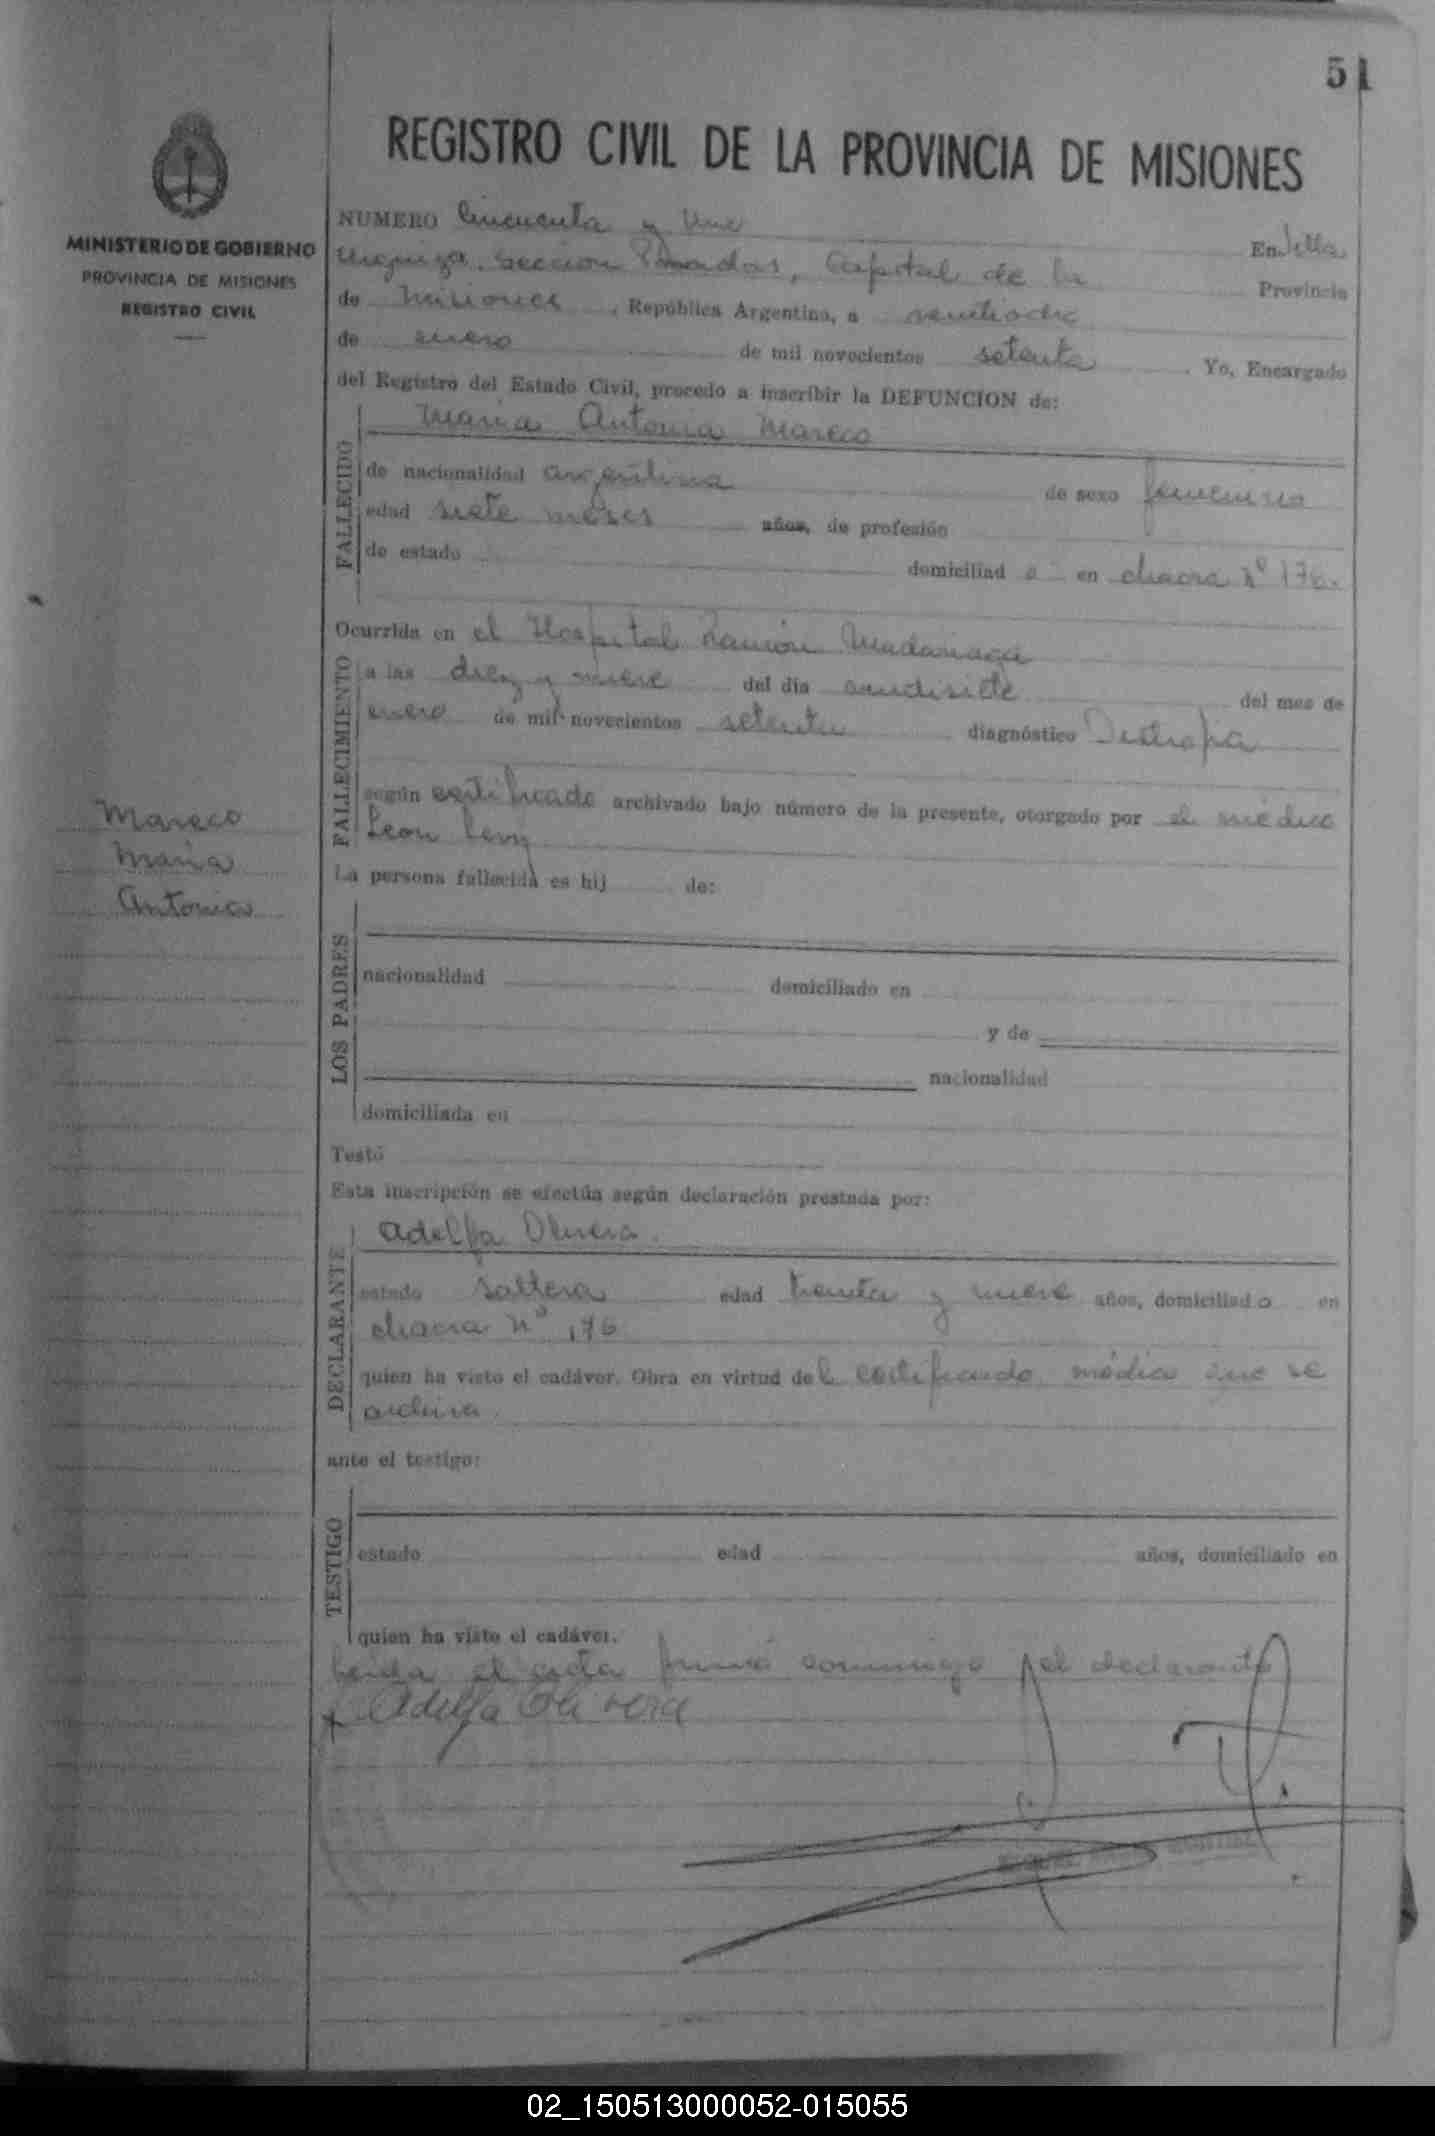 51
REGISTRO CIVIL DE LA PROVINCIA DE MISIONES
MINISTERIO DE GOBIERNO
PROVINCIA DE MISIONES
REGISTRO CIVIL
NUMERO Cincuenta y Uno En Villa
Urquiza, Sección Posadas, Capital de la Provincia
de Misiones, República Argentina, a veintiocho
de enero de mil novecientos setenta. Yo, Encargado
del Registro del Estado Civil, procedo a inscribir la DEFUNCION de:
FALLECIDO
Maria Antonia Mareco
de nacionalidad argentina de sexo femenino
edad siete meses años, de profesión
de estado domiciliad a en chacra nº 176.
FALLECIMIENTO
Ocurrida en el Hospital Ramón Madariaga
a las diez y nueve del día del mes de
enero de mil novecientos setenta diagnóstico
según certificado archivado bajo número de la presente, otorgado por el médico
Leon Levy
Mareco
Maria
Antonia
La persona fallecida es hij de:
LOS PADRES
nacionalidad domiciliado en
y de
nacionalidad
domiciliada en
Testó
Esta inscripción se efectúa según declaración prestada por:
DECLARANTE
Adelfa Olivera.
estado soltera edad treinta y nueve años, domiciliado en
chacra nº 176
quien ha visto el cadáver. Obra en virtud del certificado médico que se
archiva.
ante el testigo:
TESTIGO
estado edad años, domiciliado en
quien ha visto el cadáver.
Leída el acta firmó conmigo el declarante
Adelfa Olivera
02_150513000052-015055